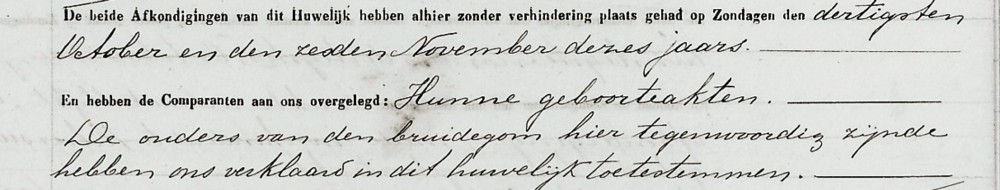 De beide Afkondigingen van dit Huwelijk hebben alhier zonder verhindering plaats gehad op Zondagen den dertigsten
October en den zesden November dezes jaars.
En hebben de Comparanten aan ons overgelegd: Hunne geboorteakten.
De ouders van den bruidegom hier tegenwoordig zijnde
hebben ons verklaard in dit huwelijk toetestemmen.